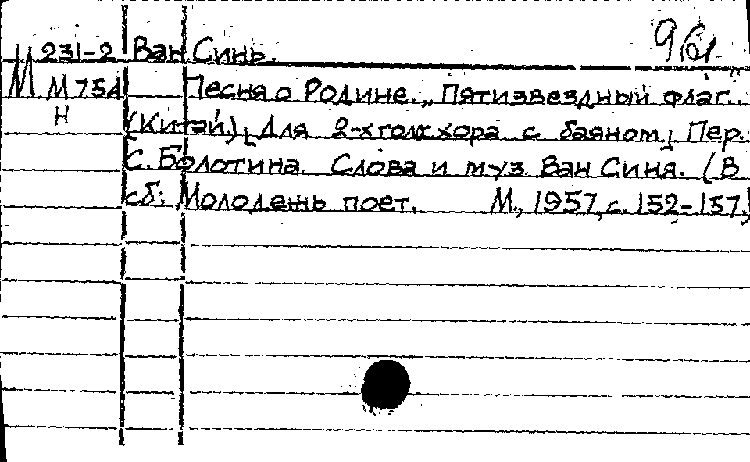 961
М 231-2 Ван Синь.
М 75А Песня о Родине. „Пятизвездный флаг..."
Н (Китай) [Для 2-х гол. хора с баяном] Пер.
С. Болотина. Слова и муз. Ван Синя. (В
сб: Молодежь поет. М., 1957, с. 152-157.)